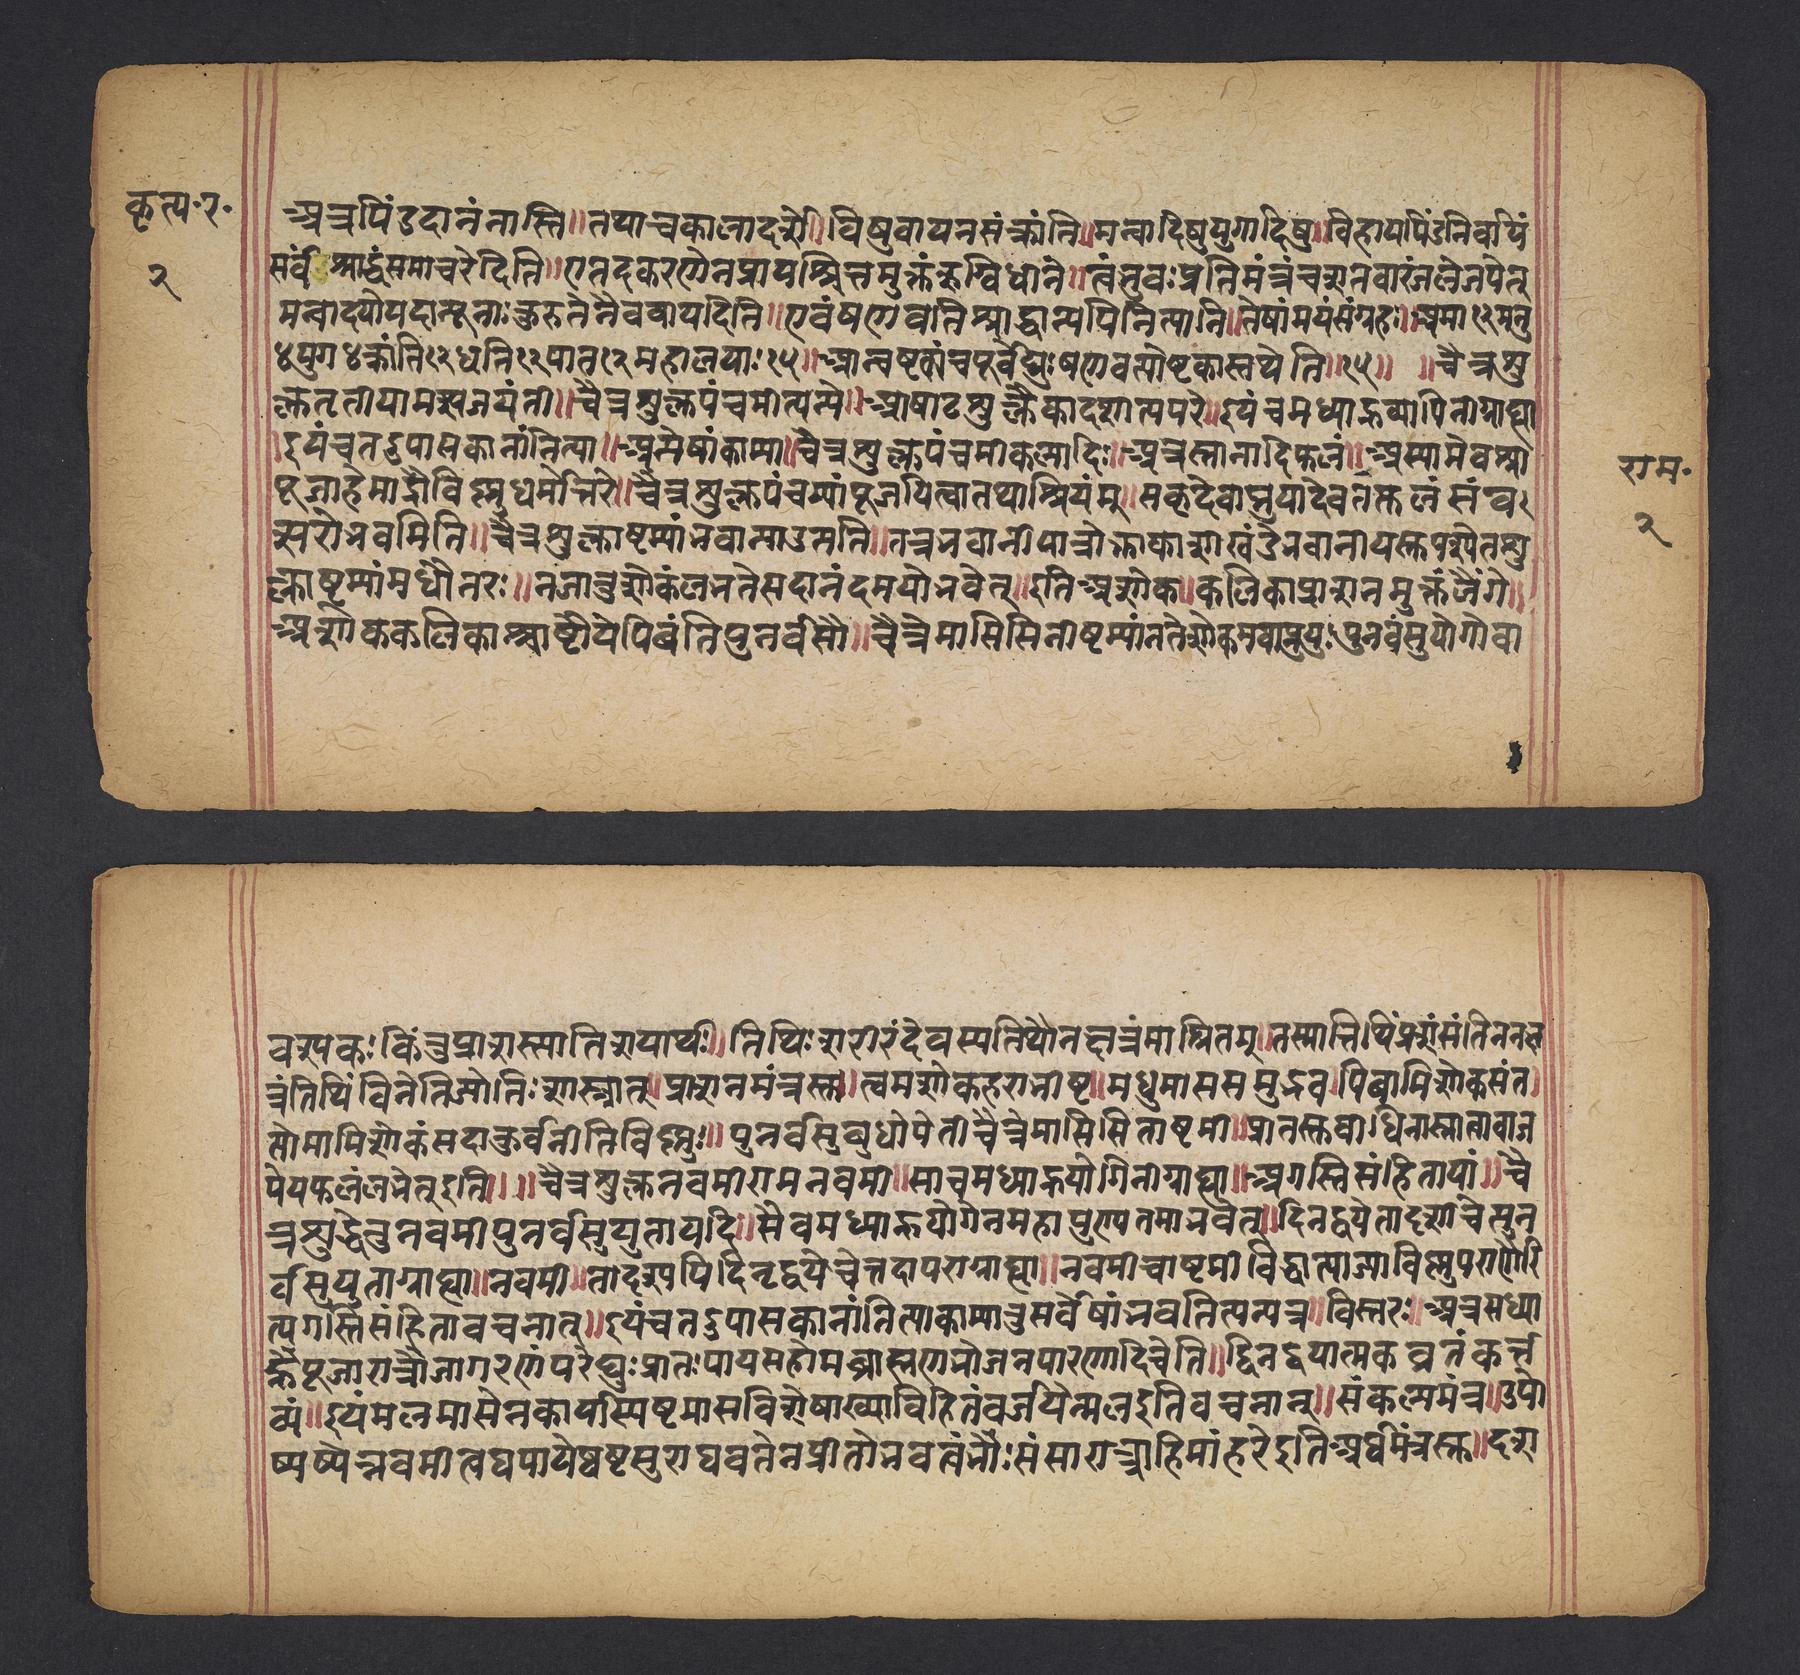 कृत्य॰र॰
२
अत्रपिंडदानंनास्ति॥तथाचकालादर्शे॥विषुवायनसंक्रांति॥मन्वादिषुयुगादिषु॥विहायपिंडनिर्वापं
सर्वंश्राद्धंसमाचरेदिति॥एतदकरणेनप्रायश्चित्तमुक्तंऋग्विधाने॥त्वंभुवःप्रतिमंत्रंचशतवारंजलेजपेत्
मन्वादयोयदान्यूनाःकुरुतेनैवचापदिति॥एवंषण्णवतिश्राद्धान्यपिनित्यानि॥तेषांमयंसंग्रहः॥अमा१२मनु
४युग४क्रांति१२धृति१२पात१२महालयाः१५॥आन्वष्टक्यंचपूर्वेद्युःषण्णवत्योष्टकास्तथेति॥१५॥ ॥चैत्रशु
क्लतृतीयामत्स्यजयंती॥चैत्रशुक्लपंचमीत्यन्ये॥आषाढशुक्लैकादशीत्यपरे॥इयंचमध्याह्नव्यापिनीग्राह्या
॥इयंचतदुपासकानांनित्या॥अन्येषांकाम्या॥चैत्रशुक्लपंचमीकल्पादिः॥अत्रस्नानादिफलं॥अस्यामेवश्री
पूजाहेमाद्रौविष्णुधर्मोत्तरे॥चैत्रशुक्लपंचम्यांपूजयित्वातथाश्रियंमु॥सकृदेवाप्नुयादेवतत्फलंसंव
त्सरोभवमिति॥चैत्रशुक्लाष्टम्यांभवान्याउत्पत्ति॥तत्रभवानीयात्रोक्ताकाशीखंडेभवानींयस्तुपश्येतशु
क्लाष्टम्यांमधौनरः॥नजातुशोकंलभतेसदानंदमयोभवेत्॥इतिअशोक॥कलिकाप्राशनमुक्तंलैंगे॥
अशोककलिकाश्चाष्टौयेपिबंतिपुनर्वसौ॥चैत्रेमासिसिताष्टम्यांनतेशोकमवाप्नुयुः॥पुनर्वसुयोगोवा
राम॰
२
वश्यकः॥किंतुप्राशस्त्यातिशयार्थः॥तिथिःशरीरंदेवस्यतिथौनक्षत्रंमाश्रितम्॥तस्मात्तिथिंप्रशंसंतिननक्ष
त्रंतिथिंविनेतिज्योतिःशास्त्रात्॥प्राशनमंत्रस्तु॥त्वमशोकहराभीष्ट॥मधुमाससमुद्भव॥पिबामिशोकसंत
प्तोमामशोकंसदाकुर्वन्नीतिविष्णुः॥पुनर्वसुबुधोपेतीचैत्रेमासिसिताष्टमी॥प्रातस्तुविधिनास्नात्वावाज
पेयफलंलभेत्इति॥॥॥चैत्रशुक्लनवमीरामनवमी॥साचमध्याह्नयोगिनीग्राह्या॥अगस्तिसंहितायां॥चै
त्रशुद्धेतुनवमीपुनर्वसुयुतायदि॥सैवमध्याह्नयोगेनमहापुण्यतमाभवेत्॥दिनद्वयेतादृशीचेत्सुन
र्वसुयुताग्राह्या॥नवमी॥तादृश्यपिदिनद्वयेचेत्तदापराग्राह्या॥नवमीचाष्टमीविद्धात्याज्याविष्णुपरायणैरि
त्यगस्तिसंहितावचनात्॥इयंचतदुपासकानांनित्याकाम्यातुसर्वेषांभवतित्यन्यत्र॥विस्तरः॥अत्रमध्या
ह्नेपूजारात्रौजागरणंपरेद्युःप्रातःपायसहोमब्राह्मणभोजनपारणादिचेति॥दिनद्वयात्मकंव्रतंकर्त्त
व्यं॥इयंमलमासेनकार्यास्पष्टमासविशेषाख्याविहितंवर्जयेन्मलइतिवचनात्॥संकल्पमंत्र॥उपो
ष्यष्येनवमीत्वद्ययामेष्वष्टसुराघवतेनप्रीतोभवत्वंभोःसंसारात्त्राहिमांहरेइतिअर्घमंत्रस्तु॥दश